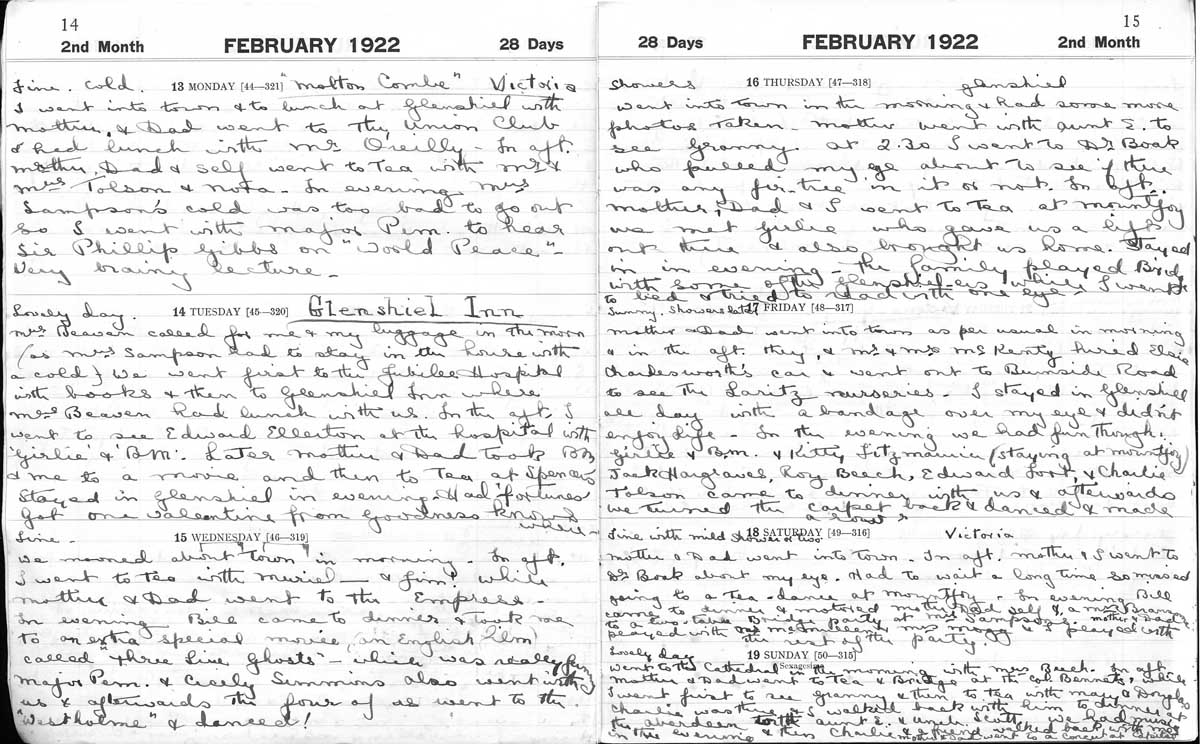 14
2nd Month FEBRUARY 1922 28 Days
Fine. Cold. 13 MONDAY [44—321] "Molton Combe" Victoria
I went into town & to lunch at Glenshiel with
mother, & Dad went to the Union Club
& had lunch with Mr O'reilly. In aft.
mother, Dad & self went to Tea with Mr &
Mrs Tolson & Nora. In evening Mrs
Sampson's cold was too bad to go out
so I went with Major Pem. to hear
Sir Phillip Gibbs on "World Peace".
Very brainy lecture.
Lovely day. 14 TUESDAY [45—320] Glenshiel Inn
Mrs Beaven called for me & my luggage in the morn
(as Mrs Sampson had to stay in the house with
a cold) We went first to the Jubilee Hospital
with books & then to Glenshiel Inn where
Mrs Beaven had lunch with us. In the aft. I
went to see Edward Ellerton at the hospital with
'Girlie' & 'B.M'. Later mother & Dad took BM
& me to a movie and then to Tea at Spencers
Stayed in Glenshiel in evening. Had fortunes
Got one valentine from Goodness knows
where—
Fine - 15 WEDNESDAY [46—319]
We mooned about town in morning. In aft.
I went to tea with Muriel — & Jim, while
mother & Dad went to the Empress.
In evening Bill came to dinner & took me
to an extra special movie (an English film)
called "Three Live Ghosts" - which was really funny
Major Pem. & Cicely Simmons also went with
us & afterwards the four of us went to the
"Westholme" & danced!
15
28 Days FEBRUARY 1922 2nd Month
Showers 16 THURSDAY [47—318] Glenshiel
went into town in the morning & had some more
photos taken. Mother went with aunt E. to
see Granny. At 2.30 I went to Dr Boak
who pulled my eye about to see if there
was any fir-tree in it or not. In aft.
mother, Dad & I went to Tea at Mountjoy
we met Girlie who gave us a lift
out there & also brought us home. Stayed
in in evening - The family played Bridge
with some of the Glenshiel-ers while I went
to bed & tried to read with one eye -
Sunny. Showers later 17 FRIDAY [48—317]
Mother & Dad went into town as per usual in morning
& in the aft. they, & Mr & Mrs McKenty hired Elsie
Charlesworth's car & went out to Burnside Road
to see the Layritz nurseries - I stayed in Glenshiel
all day with a bandage over my eye & didn't
enjoy life - In the evening we had fun though.
Girlie & B.M. & Kitty Fitzmaurice (staying at Mountjoy)
Jack Hargraves, Roy Beech, Edward & Charlie
Tolson came to dinner with us & afterwards
we turned the carpet back & danced & made
a row!
Fine with mild shower or two 18 SATURDAY [49—316] Victoria
Mother & Dad went into town. In aft. mother & I went to
Dr Boak about my eye. Had to wait a long time so missed
going to a Tea-dance at Mountjoy. In evening Bill
came to dinner & motored mother Dad self & a Mrs
to a two table Bridge Party at Mrs Sampson's. Mother & Dad
played with & Mrs & I played with
the rest of the party.
Lovely day 19 SUNDAY [50—315]
Sexagesima
Went to the Cathedral in the morning with Mrs Beech. In aft.
mother & Dad went to Tea & Bridge at the Col. Bennets, while
I went first to see Granny & then to tea with Mary &
Charlie was there & I walked back with him to dinner at
the Aberdeen with aunt E. & Scott. We had music
in the evening & then Charlie & a friend walked back with me
Mother & Dad went to a concert at